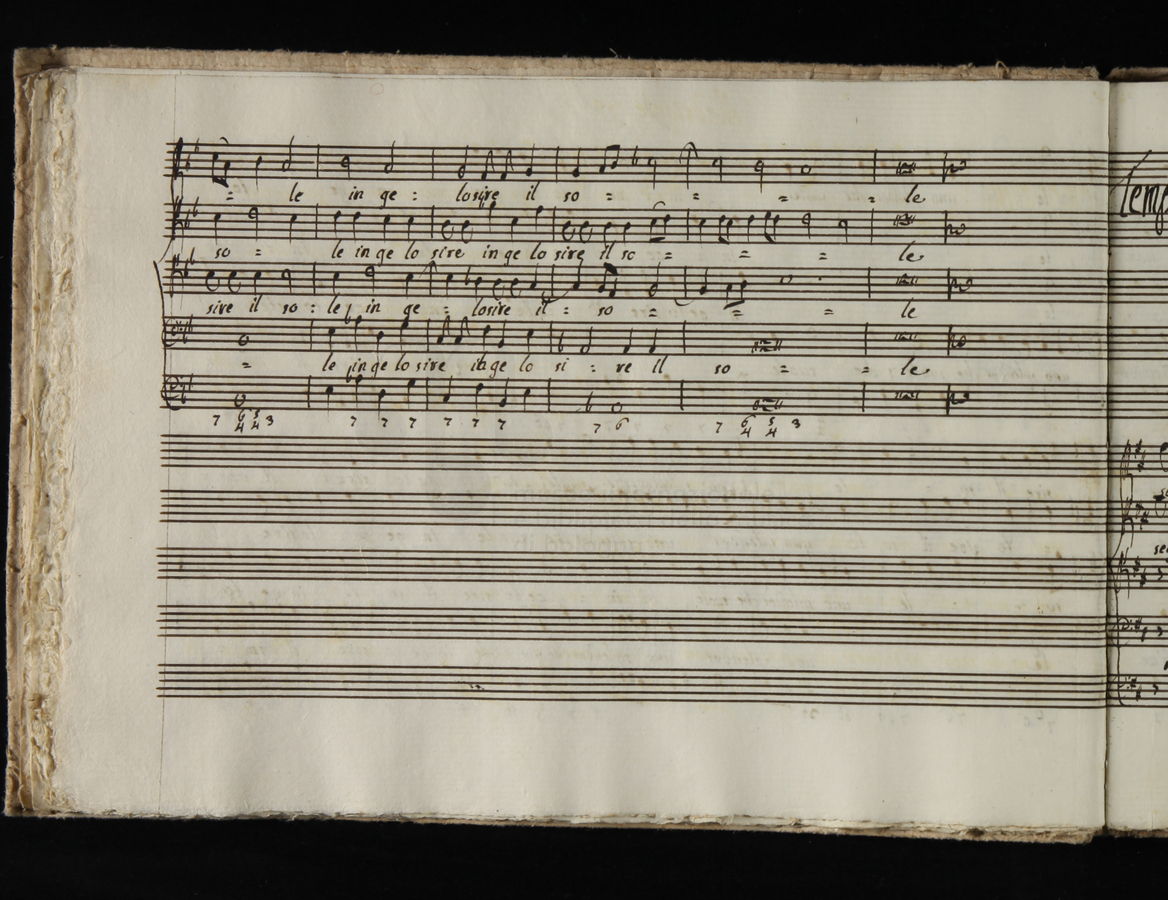 = le in ge : losire il so = = = = le
so = le in ge lo sire in ge lo sire il so = = = le
sire il so : le in ge : losire il : so = = = le
= le in ge lo sire in ge lo si : re il so = = le
7 6 5 3 7 7 7 7 7 7 7 6 7 6 5 3
4 4 4 4